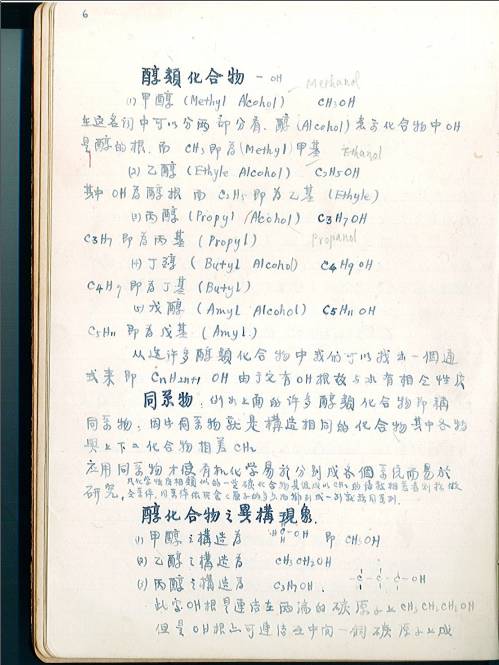 6
醇類化合物 - OH
Methanol
(1) 甲醇 (Methyl Alcohol) CH3OH
在這名詞中可以分兩部分看. 醇 (Alcohol) 表示化合物中 OH
是醇的根. 而 CH3 即為 (Methyl) 甲基
Ethanol
(2) 乙醇 (Ethyle Alcohol) C2H5OH
其中 OH 為醇根 而 C2H5 即為乙基 (Ethyle)
(3) 丙醇 (Propyl Alcohol) C3H7OH
C3H7 即為丙基 (Propyl)
Propanol
(4) 丁醇 (Butyl Alcohol) C4H9OH
C4H9 即為丁基 (Butyl)
(5) 戊醇 (Amyl Alcohol) C5H11OH
C5H11 即為戊基 (Amyl)
從這許多醇類化合物中我們可以找出一個通
式來即 CnH2n+1 OH 由於它有OH根故与水有相
同系物: 例如上面的許多醇類化合物即稱
同系物, 因為同系物就是構造相同的化合物其中各物
與上下二化合物相差 CH2
应用同系物才使有机化学易於分别成各個系统而易於
研究,
醇化合物之異構現象.
(1) 甲醇之構造為 H-C-OH 即 CH3OH
(2) 乙醇之構造為 CH3CH2OH
(3) 丙醇之構造為 C3H7OH. -C-C-C-OH
此字OH根是連结在两端的碳原子上 CH3CH2CH2OH
但是 OH根亦可連结在中间一個碳原子上成